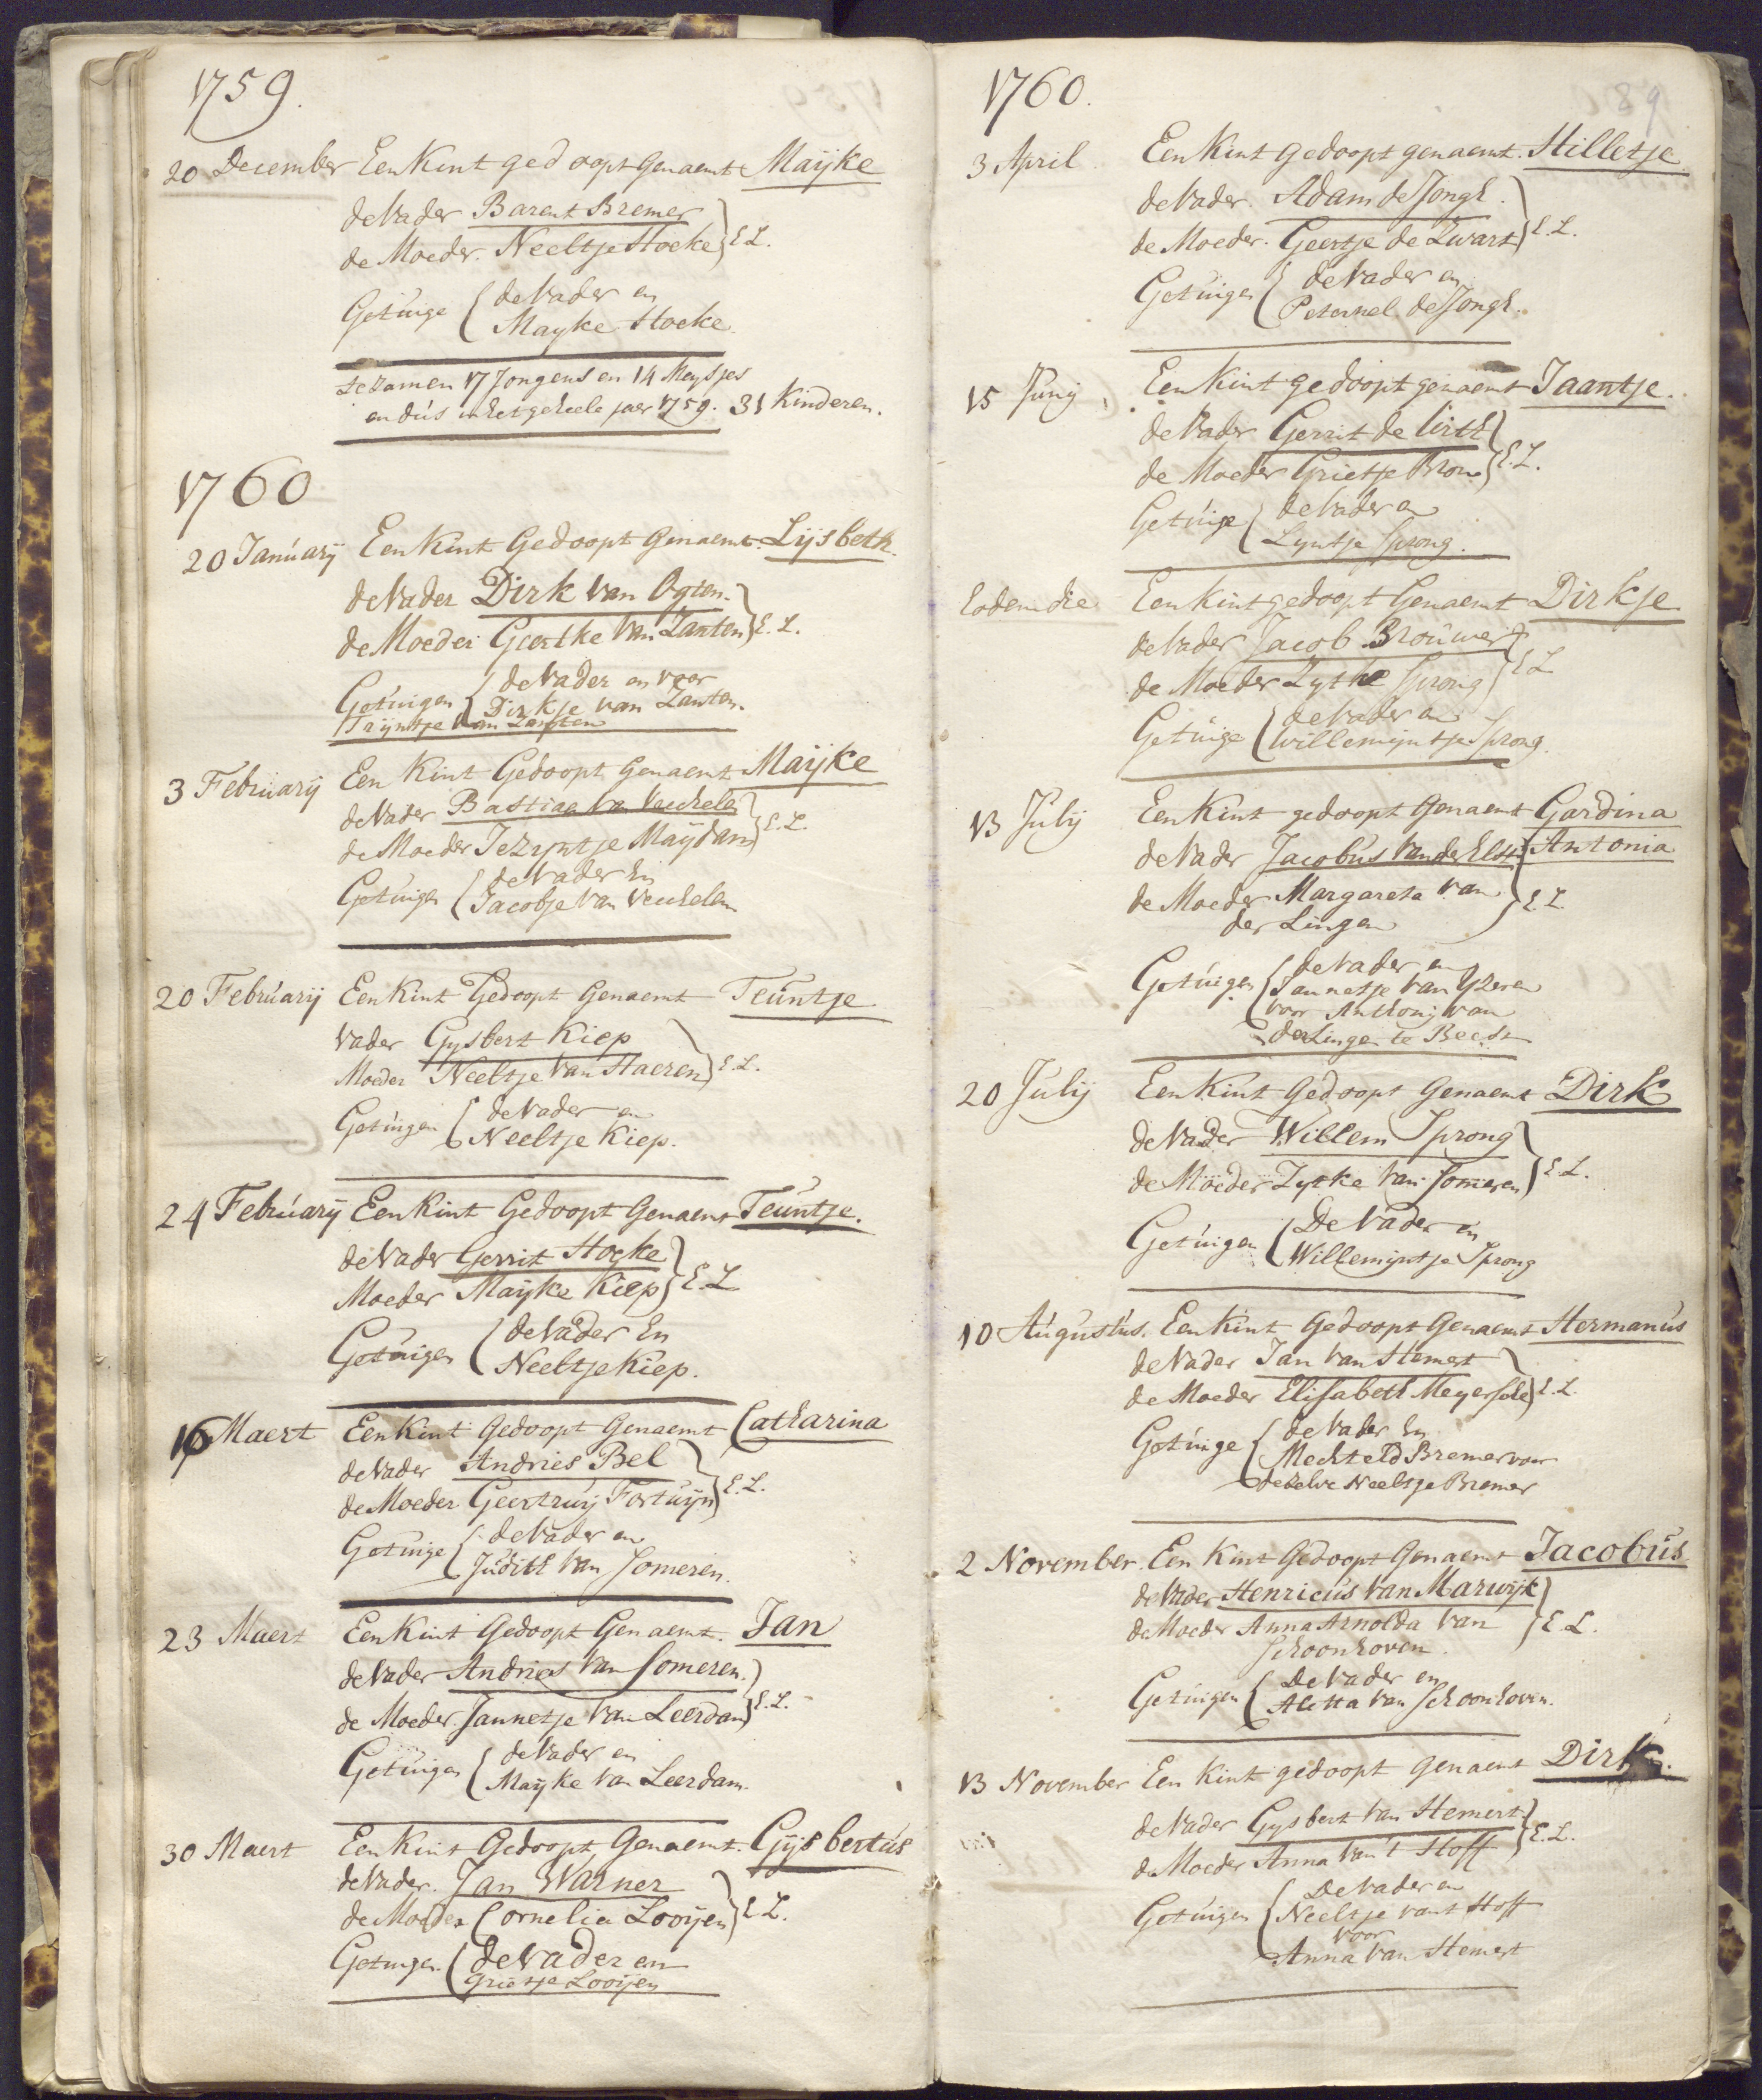 1759.
20 December Een Kint gedoopt genaemt Maijke
de Vader Barent Bremer
de Moeder. Neeltje Hoeke } E. L.
Getuige { de Vader en
Mayke Hoeke
te zamen 17 Jongens en 14 Meysjes
en dus in het geheele jaer 1759. 31 Kinderen.
1760
20 Januarij Een Kint Gedoopt Genaemt Lijsbeth.
de Vader Dirk van Ogten.
de Moeder Geertke van Zanten } E. L.
Getuigen { de Vader en voor
Dirkje van Zanten.
Trijntje van Zanten
3 Februarij Een Kint Gedoopt Genaemt Maijke
de Vader Bastiaa van Veuhelen
de Moeder Jezyntje Maijdam } E. L.
Getuigen { de Vader En
Jacobje van Veuhelen
20 Februarij Een Kint Gedoopt Genaemt Teuntje
Vader Gysbert Kiep
Moeder Neeltje van Haeren } E. L.
Getuigen { de Vader en
Neeltje Kiep.
24 Februarij Een Kint Gedoopt Genaemt Teuntje.
de Vader Gerrit Hoeke
Moeder Maijke Kiep } E. L
Getuigen { de Vader En
Neeltje Kiep.
16 Maert Een Kint Gedoopt Genaemt Catharina
de Vader Andries Bel
de Moeder Geertruij Fortuijn } E. L.
Getuige { de Vader en
Judith van Someren.
23 Maert Een Kint Gedoopt Genaemt. Jan
de Vader Andries van Someren.
de Moeder. Jannetje van Leerdam } E. L.
Getuigen { de Vader en
Maijke van Leerdam.
30 Maert Een Kint Gedoopt Genaemt. Gijsbertus
de Vader. Jan Warner
de Moeder Cornelia Looijen } E L.
Getuigen { de Vader en
Grietje Looijen
1760.
89
3 April Een Kint gedoopt genaemt. Hilletje
de Vader. Adam de Jongh.
de Moeder. Geertje de Zwart } E. L.
Getuigen { de Vader en
Peternel de Jongh.
15 Junij Een Kint gedoopt genaemt Jaantje.
de Vader Gerrit de Virth
de Moeder Grietje Bron } E. L.
Getuige { de Vader en
Lyntje Sprong.
Eodem die Een Kint gedoopt Genaemt Dirkje
de Vader Jacob Brouwer
de Moeder Zytke Sprong } E L
Getuige { de Vader en
Willemijntje Sprong.
13 Julij Een Kint gedoopt Genaemt Gardina
de Vader Jacobus van der Elst Antonia
de Moeder Margareta van } E. L.
der Lingen
Getuigen { de Vader en
Jannetje van Yzeren
voor Anthonij van
der Linge te Beest
20 Julij Een Kint Gedoopt Genaemt Dirk
de Vader Willem Sprong
de Moeder Zytke van Someren } E. L.
Getuigen { De Vader en
Willemijntje Sprong
10 Augustus. Een Kint Gedoopt Genaemt Hermanus
de Vader Jan van Hemert
de Moeder Elisabeth Meyer } E. L.
Getuige { de Vader En
Mechteld Bremer voor
dezelve Neeltje Bremer
2 November. Een Kint Gedoopt Genaemt Jacobus
de Vader Henricus van Marwijk
de Moeder Anna Arnolda van } E L.
Schoonhoven.
Getuigen { De Vader en
Aletta van Schoonhoven.
13 November Een Kint gedoopt genaemt Dirk.
de Vader Gysbert van Hemert
de Moeder Anna van 't Hoff } E. L.
Getuigen { De Vader en
Neeltje van't Hoff
voor
Anna van Hemert